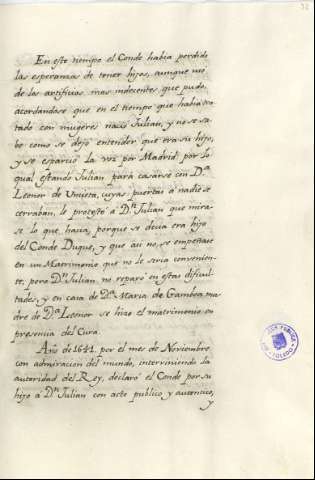 En este tiempo el Conde habia perdido
las esperanzas de tener hijos, aunque usó
de los artificios mas indecentes que pudo,
acordandose que en el tiempo que habia tra-
tado con mugeres nació Julian, y no se sa-
be como se dejó entender que era su hijo,
y se esparció la voz por Madrid por lo
qual estando Julian para casarse con Dª
Leonor de Unzeta, cuyas puertas á nadie se
cerraban, le protestó á Dn Julian que mira-
se lo que hacia, porque se decia era hijo
del Conde Duque, y que asi no se empeñase
en un Matrimonio que no le seria convenien-
te; pero Dn Julian no reparó en estas dificul-
tades, y en casa de Dª Maria de Gamboa ma-
dre de Dª Leonor se hizo el matrimonio en
presencia del Cura.
Año de 1641. por el mes de Noviembre
con admiracion del mundo, interviniendo la
autoridad del Rey, declaró el Conde por su
hijo á Dn Julian con acto publico y autentico,
y
TOLEDO